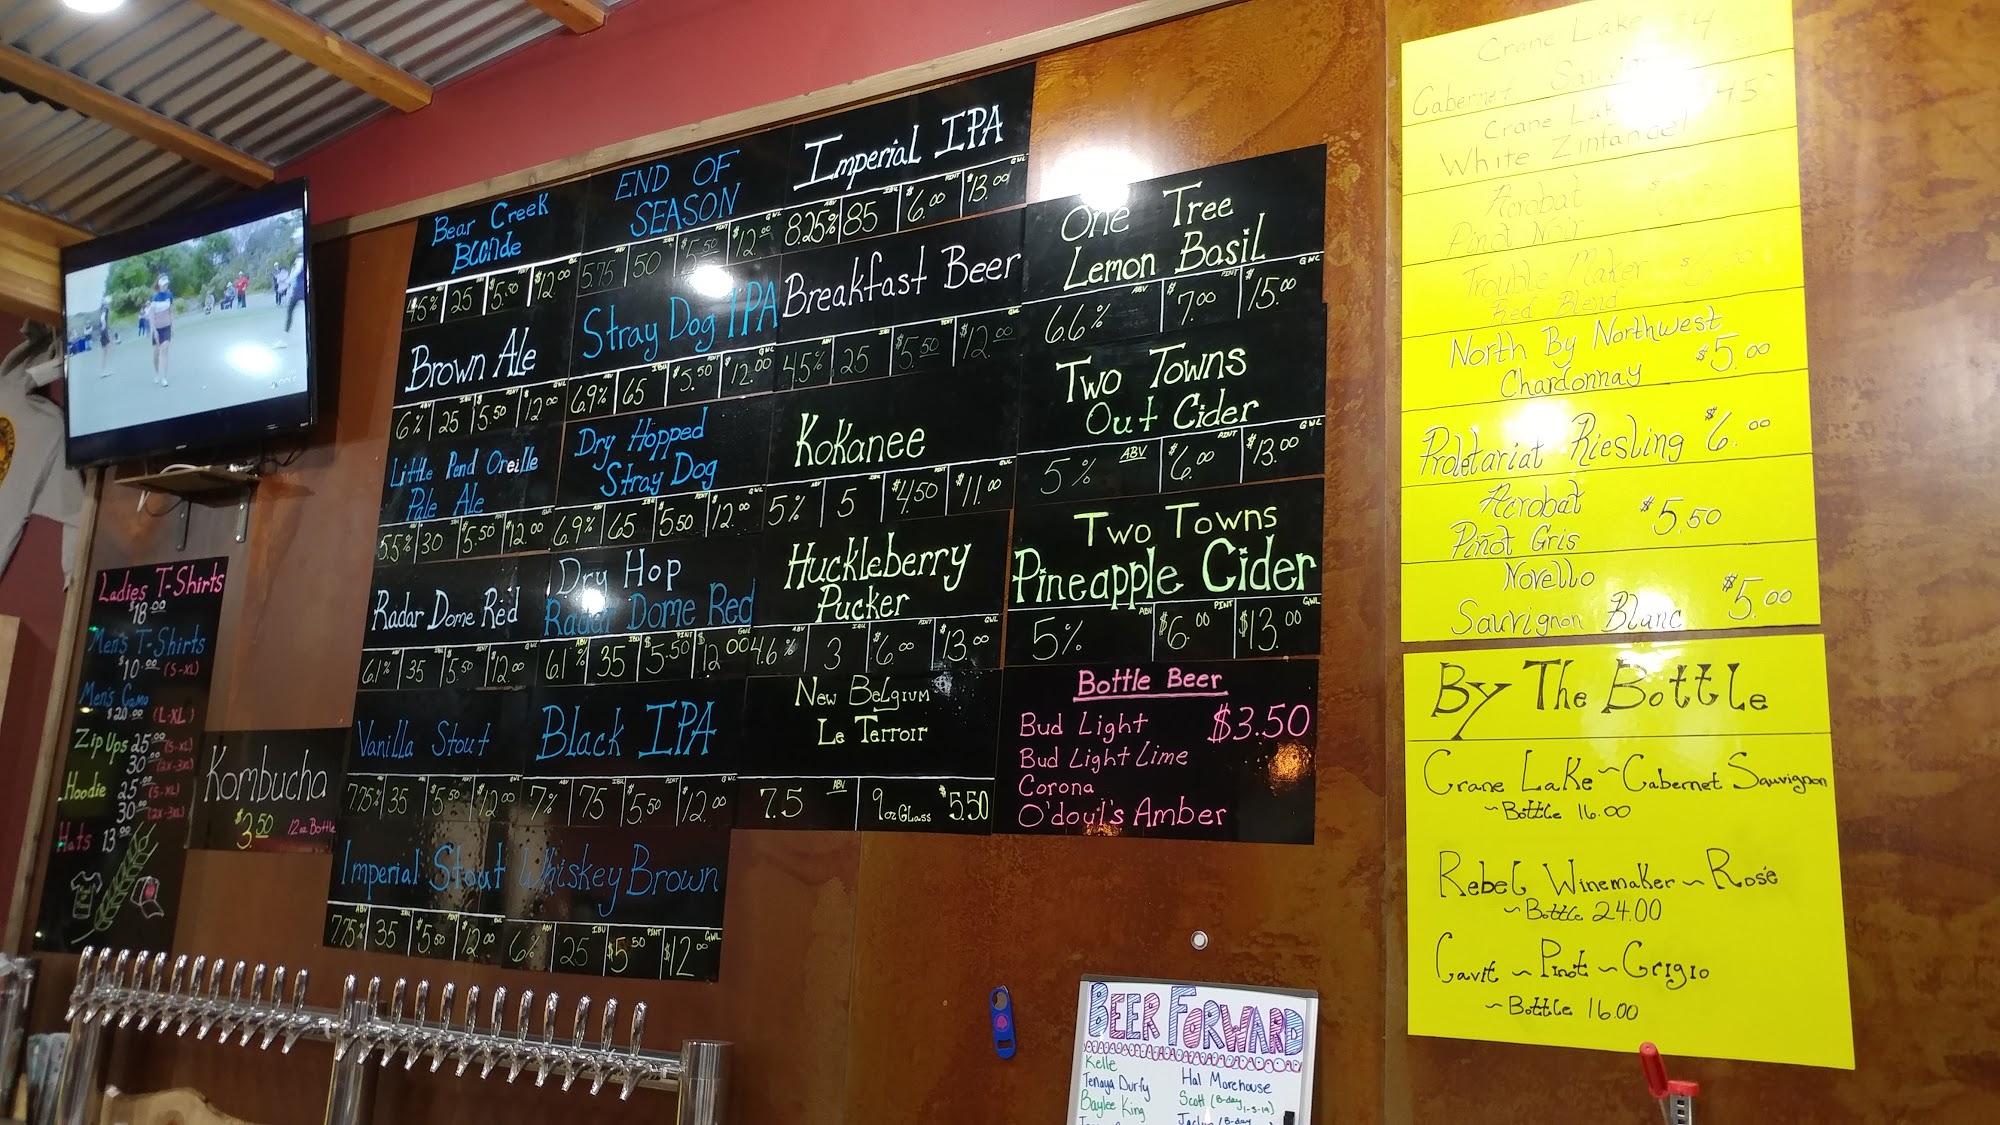 Ladies T-Shirts
$18.00
Men's T-Shirts
$10.00 (S-XL)
Men's Camo
$20.00 (L-XL)
Zip Ups 25.00 (S-XL)
30.00 (2X-3XL)
Hoodie 25.00 (S-XL)
30.00 (2X-3XL)
Hats 13.00
Kombucha
$3.50 12oz Bottle
Bear Creek
Blonde
4.5% ABV 25 IBU $5.50 PINT $12.00 GWL
Brown Ale
6% ABV 25 IBU $5.50 PINT $12.00 GWL
Little Pend Oreille
Pale Ale
5.5% ABV 30 IBU $5.50 PINT $12.00 GWL
Radar Dome Red
6.1% ABV 35 IBU $5.50 PINT $12.00 GWL
Vanilla Stout
7.75% ABV 35 IBU $5.50 PINT $12.00 GWL
Imperial Stout
7.75% ABV 35 IBU $5.50 PINT $12.00 GWL
END OF
SEASON
5.75 ABV 50 IBU $5.50 PINT $12.00 GWL
Stray Dog IPA
6.9% ABV 65 IBU $5.50 PINT $12.00 GWL
Dry Hopped
Stray Dog
6.9% ABV 65 IBU $5.50 PINT $12.00 GWL
Dry Hop
Radar Dome Red
6.1% ABV 35 IBU $5.50 PINT $12.00 GWL
Black IPA
7% ABV 75 IBU $5.50 PINT $12.00 GWL
Whiskey Brown
6% ABV 25 IBU $5.50 PINT $12.00 GWL
Imperial IPA
8.25% ABV 85 IBU $6.00 PINT $13.00 GWL
Breakfast Beer
4.5% ABV 25 IBU $5.50 PINT $12.00 GWL
Kokanee
5% ABV 5 IBU $4.50 PINT $11.00 GWL
Huckleberry
Pucker
4.6% ABV 3 IBU $6.00 PINT $13.00 GWL
New Belgium
Le Terroir
7.5 ABV 9oz Glass $5.50
One Tree
Lemon Basil
6.6% ABV $7.00 PINT $15.00 GWL
Two Towns
Out Cider
5% ABV $6.00 PINT $13.00 GWL
Two Towns
Pineapple Cider
5% ABV $6.00 PINT $13.00 GWL
Bottle Beer
Bud Light $3.50
Bud Light Lime
Corona
O'doul's Amber
Crane Lake 4
Cabernet
Crane Lake
White Zinfandel
Acrobat
Pinot Noir
Trouble Maker
Red Blend
North By Northwest
Chardonnay $5.00
Proletariat Riesling $6.00
Acrobat
Pinot Gris $5.50
Novello
Sauvignon Blanc $5.00
By The Bottle
Crane Lake ~ Cabernet Sauvignon
~ Bottle 16.00
Rebel Winemaker ~ Rosé
~ Bottle 24.00
Cavit ~ Pinot ~ Grigio
~ Bottle 16.00
BEER FORWARD
Kelle
Tenaya Durfy
Baylee King
Hal Morehouse
Scott (B-day 1-3-19)
(B-day